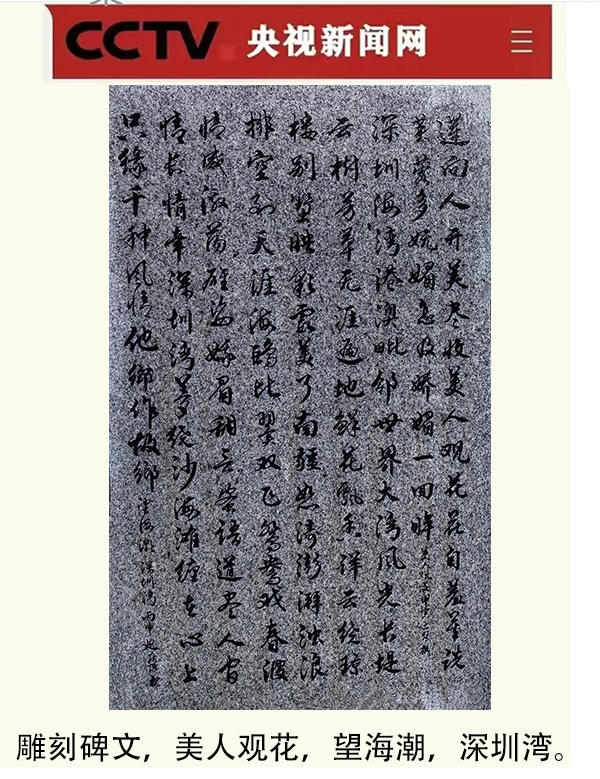 CCTV 央视新闻网
莲向人开美尽收美人观花花自羞说
芙蓉多妩媚怎及娇媚一回眸
深圳海湾港澳毗邻世界大湾风光长堤
云树芳草无涯遍地鲜花飘香祥云绕琼
楼别墅映彩霞美了南疆怒涛澎湃浊浪
排空到天涯海鸥比翼双飞鸳鸯戏春波
情感激荡娥眉甜言蜜语道尽人间
情长情牵深圳湾梦绕沙海滩缠在心上
只缘千种风情他乡作故乡 望海潮 深圳湾
雕刻碑文，美人观花，望海潮，深圳湾。